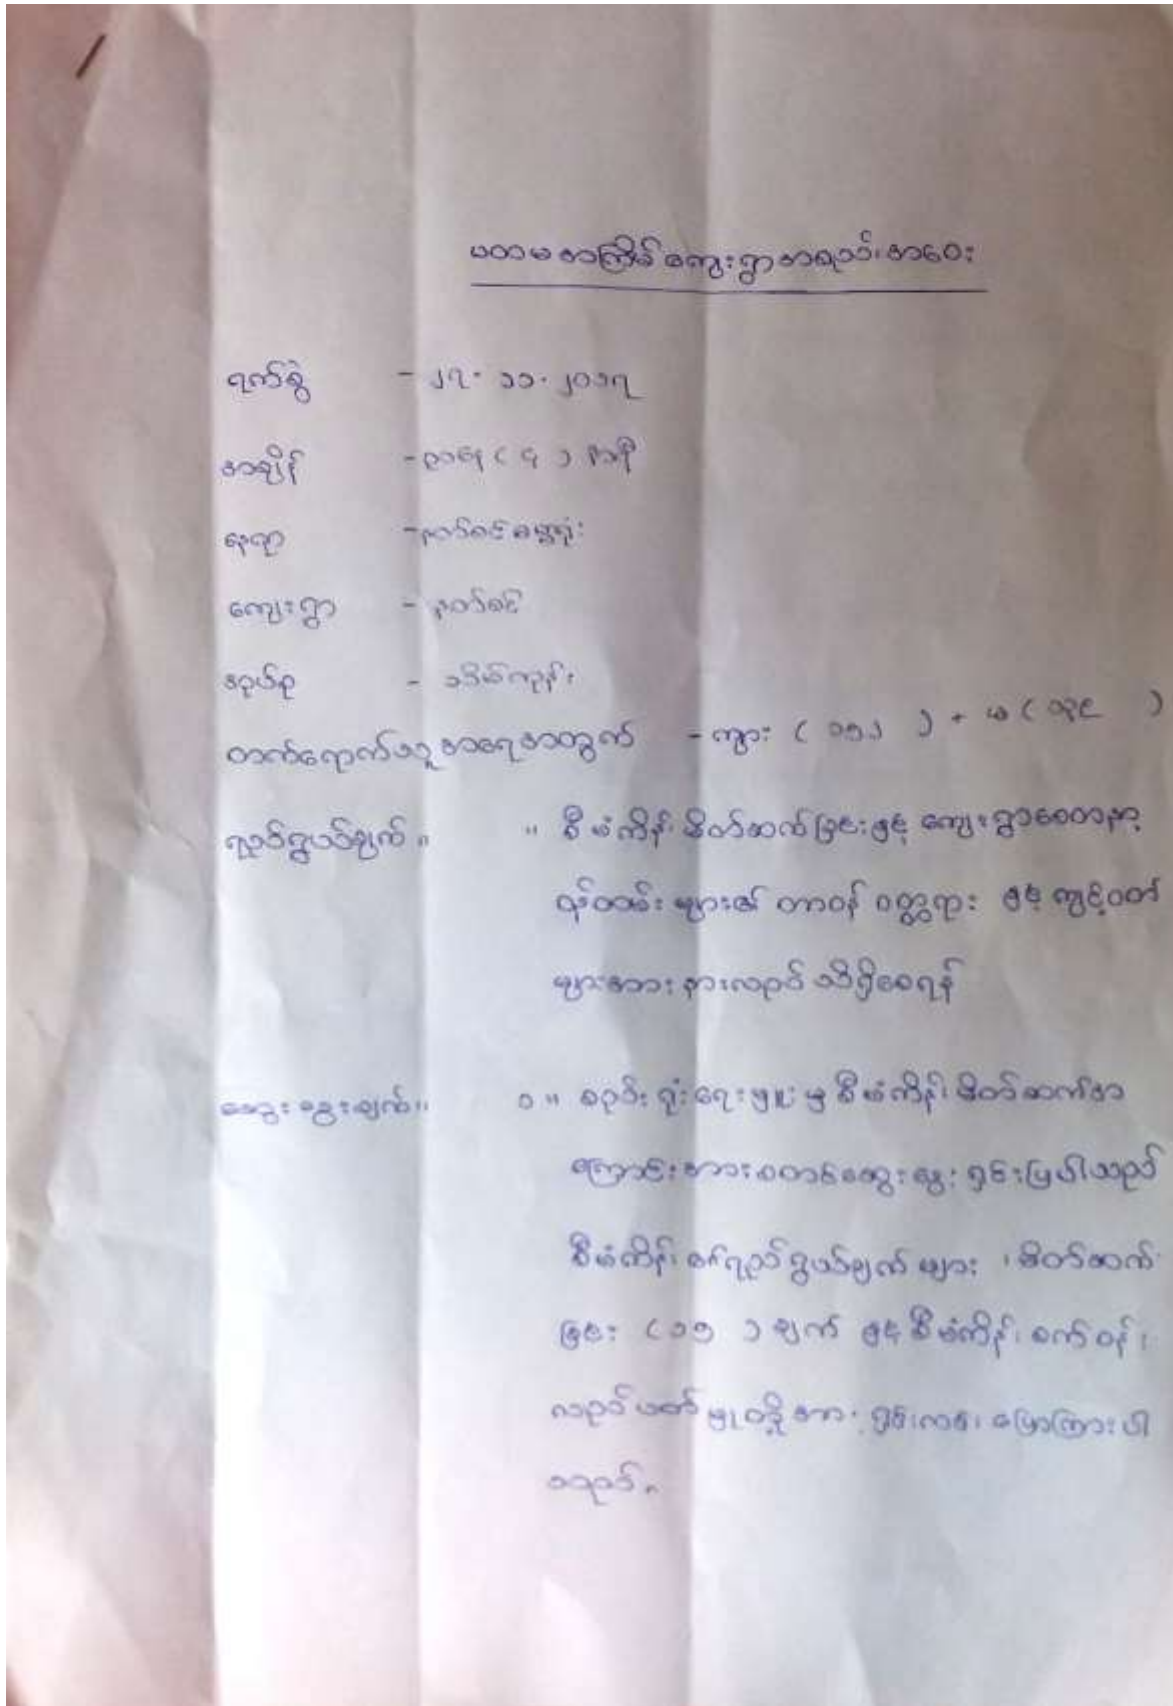 ပထမအကြိမ်ကျေးရွာအစည်းအဝေး
ရက်စွဲ - ၂၇.၁၁.၂၀၁၇
အချိန် - ညနေ ( ၄ ) နာရီ
နေရာ -
ကျေးရွာ -
တက်ရောက်သူအရေအတွက် - ကျား ( ၁၅၂ ) + မ ( )
ရည်ရွယ်ချက်။ ။ စီမံကိန်းမိတ်ဆက်ခြင်းနှင့် ကျေးရွာစေတနာ့
ဝန်ထမ်းများ၏ တာဝန် ဝတ္တရား နှင့် ကျင့်ဝတ်
များအား နားလည် သိရှိစေရန်
ဆွေးနွေးချက်။ ၁။ စည်းရုံးရေးမှူးမှ စီမံကိန်းမိတ်ဆက်အ
ကြောင်းအားစတင်ဆွေးနွေးရှင်းပြပါသည်
စီမံကိန်း၏ရည်ရွယ်ချက်များ ၊ မိတ်ဆက်
ခြင်း ( ၁၅ ) ချက် နှင့် စီမံကိန်းစက်ဝန်း
လည်ပတ်မှုတို့အား ရှင်းလင်းပြောကြားပါ
သည်။